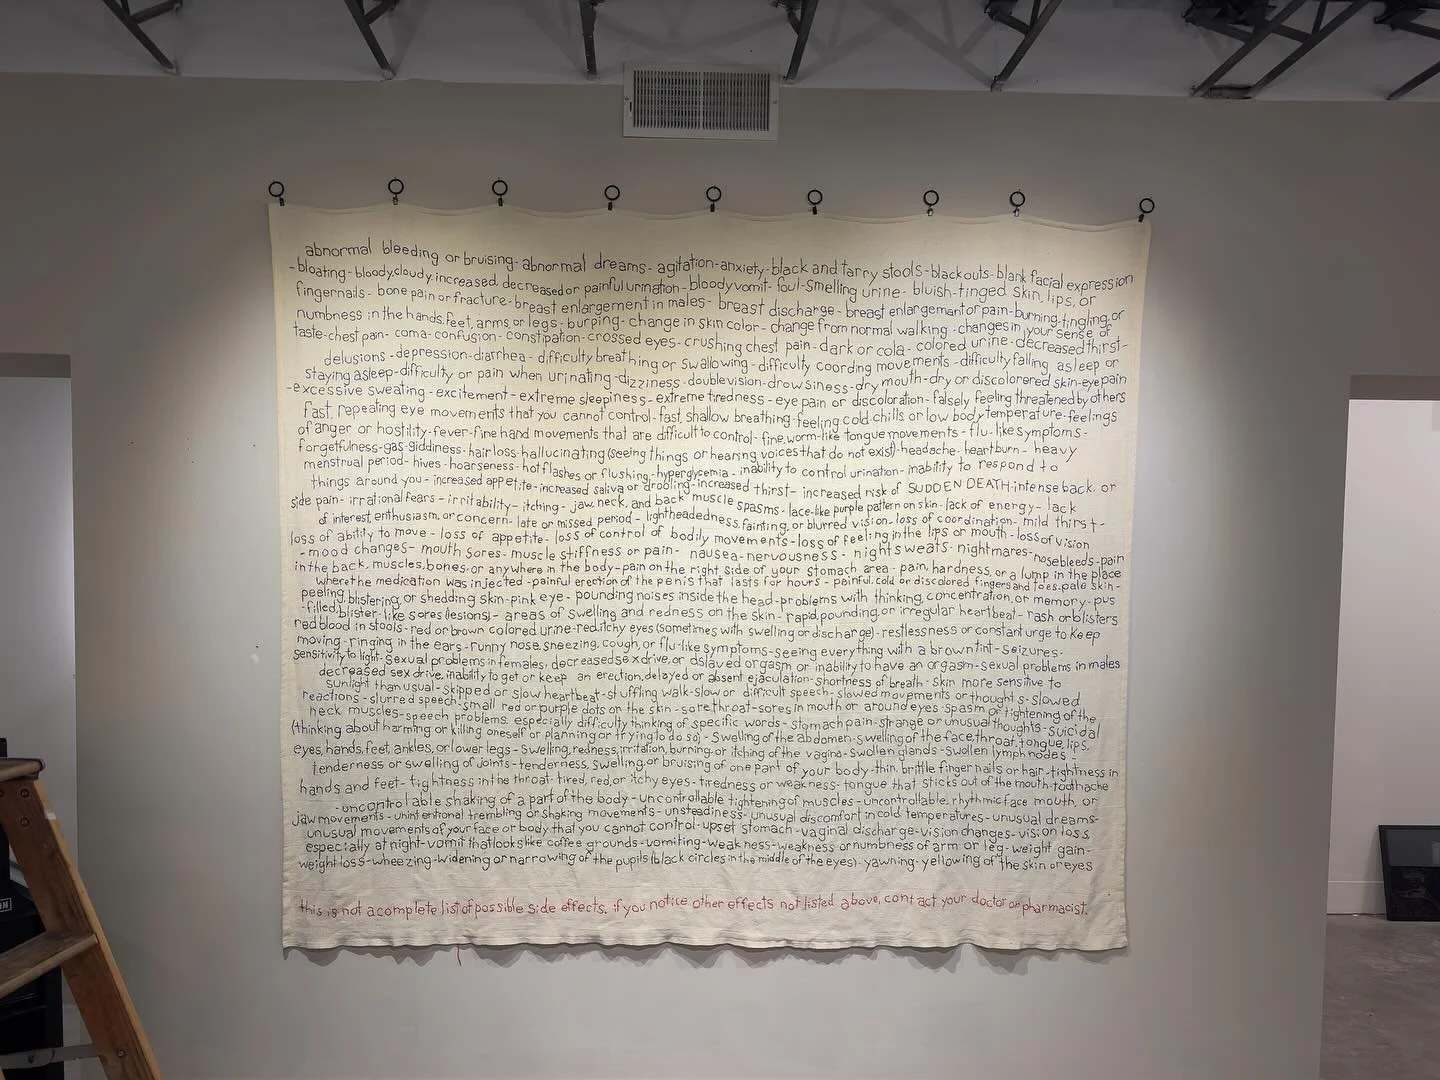 abnormal bleeding or bruising- abnormal dreams- agitation-anxiety-black and tarry stools-blackouts-blank facial expression
-bloating-bloody,cloudy, increased, decreased or painful urination-bloody vomit- foul-smelling urine- bluish-tinged skin, lips, or
fingernails- bone pain or fracture-breast enlargement in males- breast discharge- breast enlargement or pain-burning, tingling, or
numbness in the hands, feet, arms or legs- burping- change in skin color- change from normal walking -changes in your sense of
taste-chest pain- coma-confusion- constipation-crossed eyes- crushing chest pain- dark or cola- colored urine-decreased thirst-
delusions -depression-diarrhea- difficulty breathing or swallowing- difficulty coording movements -difficulty falling asleep or
staying asleep-difficulty or pain when urinating-dizziness-double vision-drowsiness-dry mouth-dry or discolorered skin-eye pain
-excessive sweating- excitement- extreme sleepiness- extreme tiredness- eye pain or discoloration- falsely feeling threatened by others
fast, repeating eye movements that you cannot control-fast, shallow breathing-feeling cold-chills or low body temperature-feelings
of anger or hostility-fever-fine hand movements that are difficult to control- fine, worm-like tongue movements- flu-like symptoms-
forgetfulness-gas-giddiness-hair loss-hallucinating (seeing things or hearing voices that do not exist)-headache- heartburn- heavy
menstrual period- hives- hoarseness-hot flashes or flushing-hyperglycemia- inability to control urination- inability to respond to
things around you- increased appetite-increased saliva or drooling-increased thirst- increased risk of SUDDEN DEATH-intense back, or
side pain- irrational fears- irritability- itching- jaw, neck, and back muscle spasms- lace-like purple pattern on skin-lack of energy- lack
of interest, enthusiasm, or concern- late or missed period- lightheadedness, fainting, or blurred vision-loss of coordination- mild thirst-
loss of ability to move- loss of appetite- loss of control of bodily movements-loss of feeling in the lips or mouth-loss of vision
-mood changes- mouth sores- muscle stiffness or pain- nausea-nervousness- night sweats- nightmares-nosebleeds-pain
in the back, muscles, bones, or anywhere in the body-pain on the right side of your stomach area- pain, hardness, or a lump in the place
where the medication was injected -painful erection of the penis that lasts for hours- painful, cold or discolored fingers and toes-pale skin-
peeling, blistering, or shedding skin-pink eye- pounding noises inside the head-problems with thinking, concentration, or memory-pus
-filled, blister-like sores (lesions)- areas of swelling and redness on the skin- rapid, pounding, or irregular heartbeat- rash or blisters
red blood in stools-red or brown colored urine-red, itchy eyes (sometimes with swelling or discharge)-restlessness or constant urge to keep
moving-ringing in the ears-runny nose, sneezing, cough, or flu-like symptoms-seeing everything with a brown tint-seizures-
sensitivity to light-sexual problems in females, decreased sex drive, or dslayed orgasm or inability to have an orgasm-sexual problems in males
decreased sex drive, inability to get or keep an erection, delayed or absent ejaculation-shortness of breath- skin more sensitive to
sunlight than usual-skipped or slow heartbeat-stuffling walk-slow or difficult speech-slowed movements or thoughts-slowed
reactions-slurred speech-small red or purple dots on the skin-sore throat-sores in mouth or around eyes-spasm or tightening of the
neck muscles-speech problems, especially difficulty thinking of specific words- stomach pain-strange or unusual thoughts-suicidal
(thinking about harming or killing oneself or planning or trying to do so)-swelling of the abdomen-swelling of the face, throat, tongue, lips,
eyes, hands, feet, ankles, or lower legs-swelling, redness, irritation, burning, or itching of the vagina-swollen glands-swollen lymph nodes-
tenderness or swelling of joints-tenderness, swelling, or bruising of one part of your body-thin, brittle finger nails or hair-tightness in
hands and feet- tightness in the throat-tired, red, or itchy eyes-tiredness or weakness- tongue that sticks out of the mouth-toothache
-uncontrolable shaking of a part of the body-uncontrollable tightening of muscles-uncontrollable, rhythmic face mouth, or
jaw movements- unintentional trembling or shaking movements-unsteadiness-unusual discomfort in cold temperatures-unusual dreams-
unusual movements of your face or body that you cannot control-upset stomach-vaginal discharge-vision changes-vision loss
especially at night-vomit that looks like coffee grounds-vomiting-weakness-weakness or numbness of arm or leg-weight gain-
weight loss-wheezing-widening or narrowing of the pupils (black circles in the middle of the eyes)-yawning-yellowing of the skin or eyes
this is not a complete list of possible side effects. if you notice other effects not listed above, contact your doctor or pharmacist.